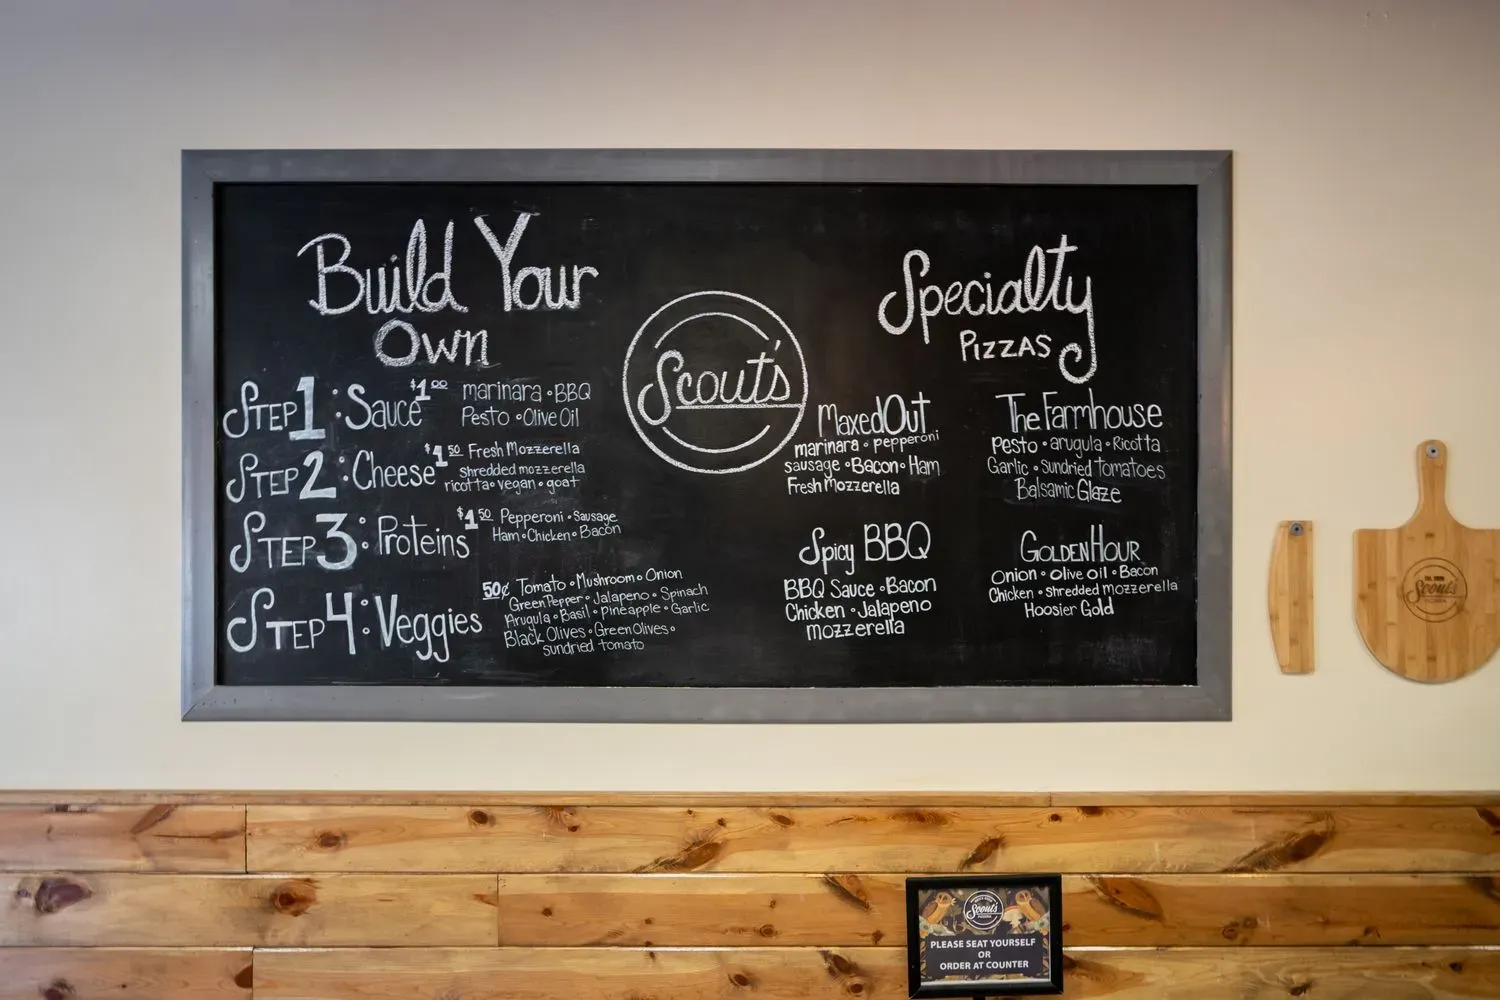 Build Your
Own
STEP 1 : Sauce $1.00 marinara • BBQ
Pesto • Olive Oil
STEP 2 : Cheese $1.50 Fresh Mozzerella
shredded mozzerella
ricotta • vegan • goat
STEP 3 : Proteins $1.50 Pepperoni • Sausage
Ham • Chicken • Bacon
STEP 4 : Veggies 50¢ Tomato • Mushroom • Onion
Green Pepper • Jalapeno • Spinach
Arugula • Basil • Pineapple • Garlic
Black Olives • Green Olives •
sundried tomato
Scout's
Specialty
PIZZAS
Maxed Out
marinara • pepperoni
sausage • Bacon • Ham
Fresh Mozzerella
The Farmhouse
Pesto • arugula • Ricotta
Garlic • sundried tomatoes
Balsamic Glaze
Spicy BBQ
BBQ Sauce • Bacon
Chicken • Jalapeno
mozzerella
GOLDEN HOUR
Onion • Olive oil • Bacon
Chicken • shredded mozzerella
Hoosier Gold
Scout's
Scout's
PLEASE SEAT YOURSELF
OR
ORDER AT COUNTER